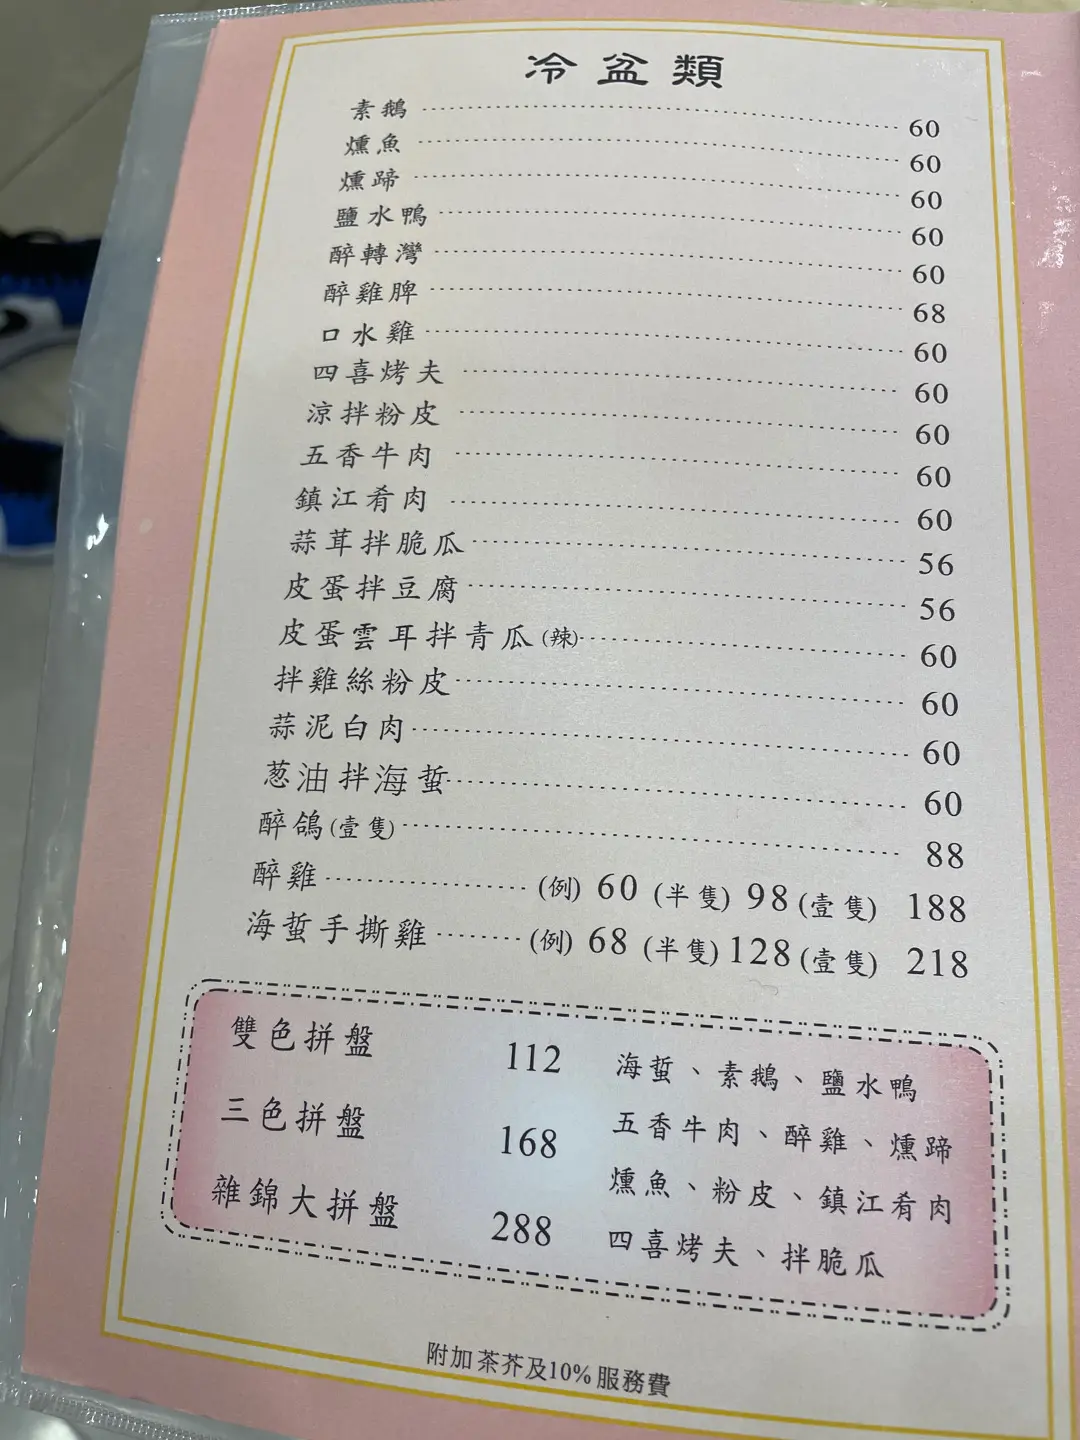 冷盆類
素鵝 60
燻魚 60
燻蹄 60
鹽水鴨 60
醉轉灣 60
醉雞脾 68
口水雞 60
四喜烤夫 60
涼拌粉皮 60
五香牛肉 60
鎮江肴肉 60
蒜茸拌脆瓜 56
皮蛋拌豆腐 56
皮蛋雲耳拌青瓜(辣) 60
拌雞絲粉皮 60
蒜泥白肉 60
葱油拌海蜇 60
醉鴿(壹隻) 88
醉雞 (例) 60 (半隻) 98 (壹隻) 188
海蜇手撕雞 (例) 68 (半隻) 128 (壹隻) 218
雙色拼盤 112
三色拼盤 168
雜錦大拼盤 288
海蜇、素鵝、鹽水鴨
五香牛肉、醉雞、燻蹄
燻魚、粉皮、鎮江肴肉
四喜烤夫、拌脆瓜
附加茶芥及10%服務費